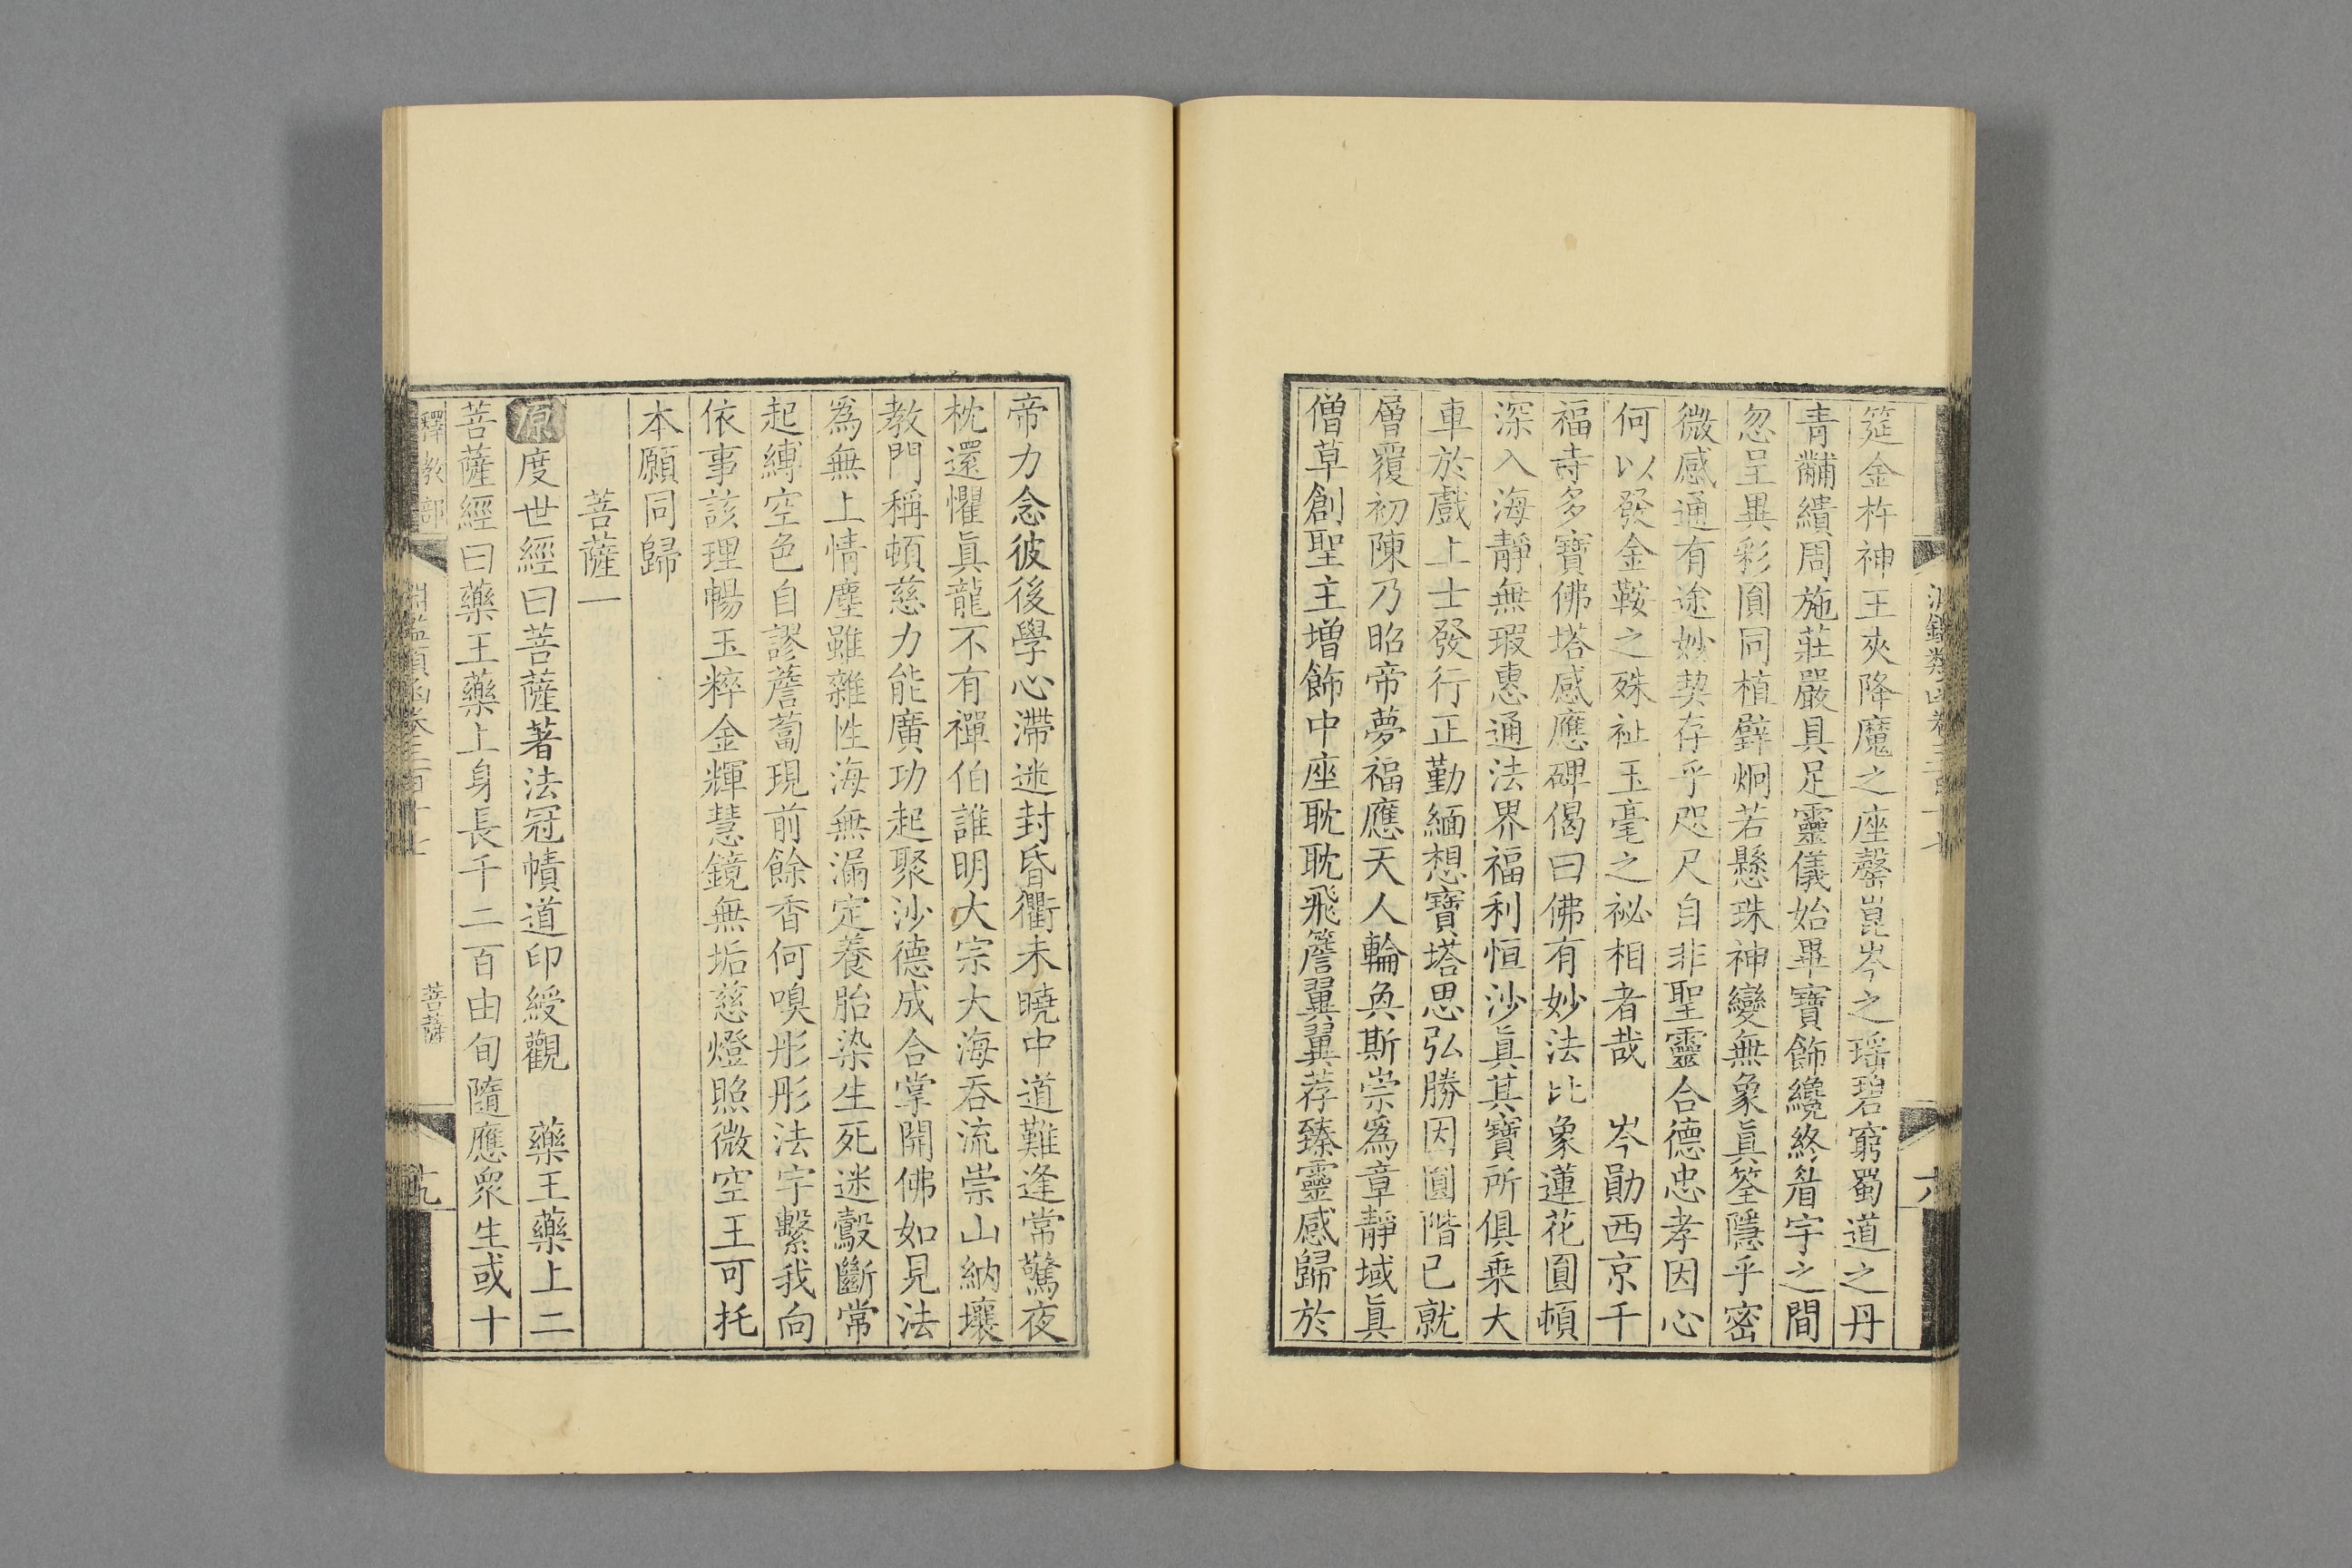 筵金杵神王夾降魔之座罄崑岑之瑶碧窮蜀道之丹
青黼繢周施莊嚴具足靈儀始畢寶飾纔終眉宇之間
忽呈異彩圓同植璧炯若懸珠神變無象眞筌隱乎密
微感通有途妙契存乎咫尺自非聖靈合德忠孝因心
何以發金鞍之殊祉玉毫之祕相者哉　岑勛西京千
福寺多寶佛塔感應碑偈曰佛有妙法比象蓮花圓頓
深入海靜無瑕惠通法界福利恒沙眞其寶所俱乗大
車於戲上士發行正勤緬想寶塔思弘勝因圓階已就
層覆初陳乃昭帝夢福應天人輪奐斯崇爲章靜域眞
僧草創聖主增飾中座耽耽飛簷翼翼荐臻靈感歸於
帝力念彼後學心滯迷封昏衢未曉中道難逢常驚夜
枕還懼眞龍不有禪伯誰明大宗大海吞流崇山納壤
教門稱頓慈力能廣功起聚沙德成合掌開佛如見法
爲無上情塵雖雜性海無漏定養胎染生死迷鷇斷常
起縛空色自謬薝蔔現前餘香何嗅彤彤法宇繫我向
依事該理暢玉粹金輝慧鏡無垢慈燈照微空王可托
本願同歸
菩薩一
原度世經曰菩薩著法冠幘道印綬觀　藥王藥上二
菩薩經曰藥王藥上身長千二百由旬隨應衆生或十
釋教部
淵鑑類函卷三百十七
菩薩